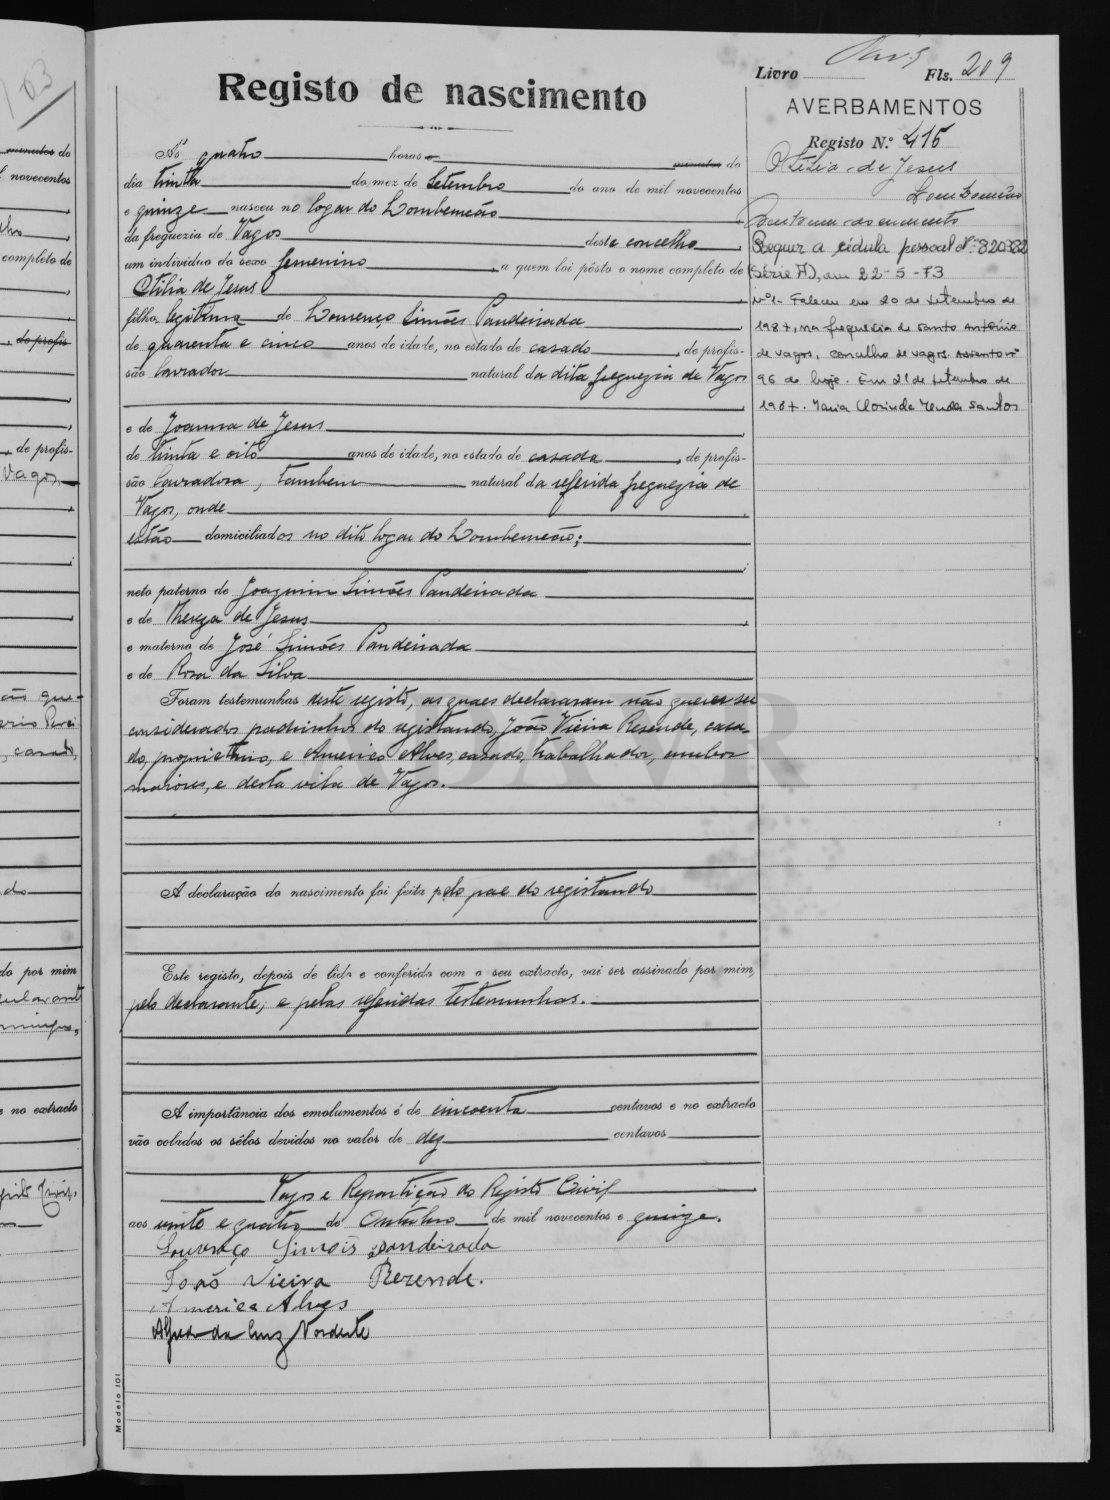 Livro Fls. 209
Registo de nascimento
AVERBAMENTOS
Registo N.º 415
Otilia de Jesus
Lombomeão
Requer a cédula pessoal Nº 820382
(Série A), em 22-5-73
Nº1- Faleceu em 20 de setembro de
1987, na freguesia de Santo António
de Vagos, concelho de Vagos. Assento nº
96 de hoje. Em 21 de setembro de
1987. Maria Clorinda Santos
Ás quatro horas e minutos do
dia trinta do mez de Setembro do ano de mil novecentos
e quinze nasceu no logar do Lombomeão
da freguezia de Vagos deste concelho,
um individuo do sexo femenino, a quem foi pôsto o nome completo de
Otilia de Jesus,
filha legitima de Lourenço Simões Pandeirada,
de quarenta e cinco anos de idade, no estado de casado, de profis-
são lavrador natural da dita freguezia de Vagos
,
e de Joanna de Jesus,
de trinta e oito anos de idade, no estado de casada, de profis-
são lavradora, tambem natural da referida freguezia de
Vagos, onde
estão domiciliados no dito logar do Lombomeão;
;
neto paterno de Joaquim Simões Pandeirada
e de Thereza de Jesus,
e materno de José Simões Pandeirada
e de Rosa da Silva
Foram testemunhas deste registo, as quaes declararam não querer ser
considerados padrinhos do registando, João Vieira Resende, casa-
do, proprietario, e Americo Alves, casado, trabalhador, ambos
maiores, e desta vila de Vagos.
ADAVR
A declaração do nascimento foi feita pelo pae do registando
Este registo, depois de lido e conferido com o seu extracto, vai ser assinado por mim,
pelo declarante, e pelas referidas testemunhas.
A importância dos emolumentos é de cincoenta centavos e no extracto
vão colados os sêlos devidos no valor de dez centavos
Vagos e Repartição do Registo Civil
aos vinte e quatro de Outubro de mil novecentos e quinze.
Lourenço Simões Pandeirada
João Vieira Rezende.
Americo Alves
Modelo 101